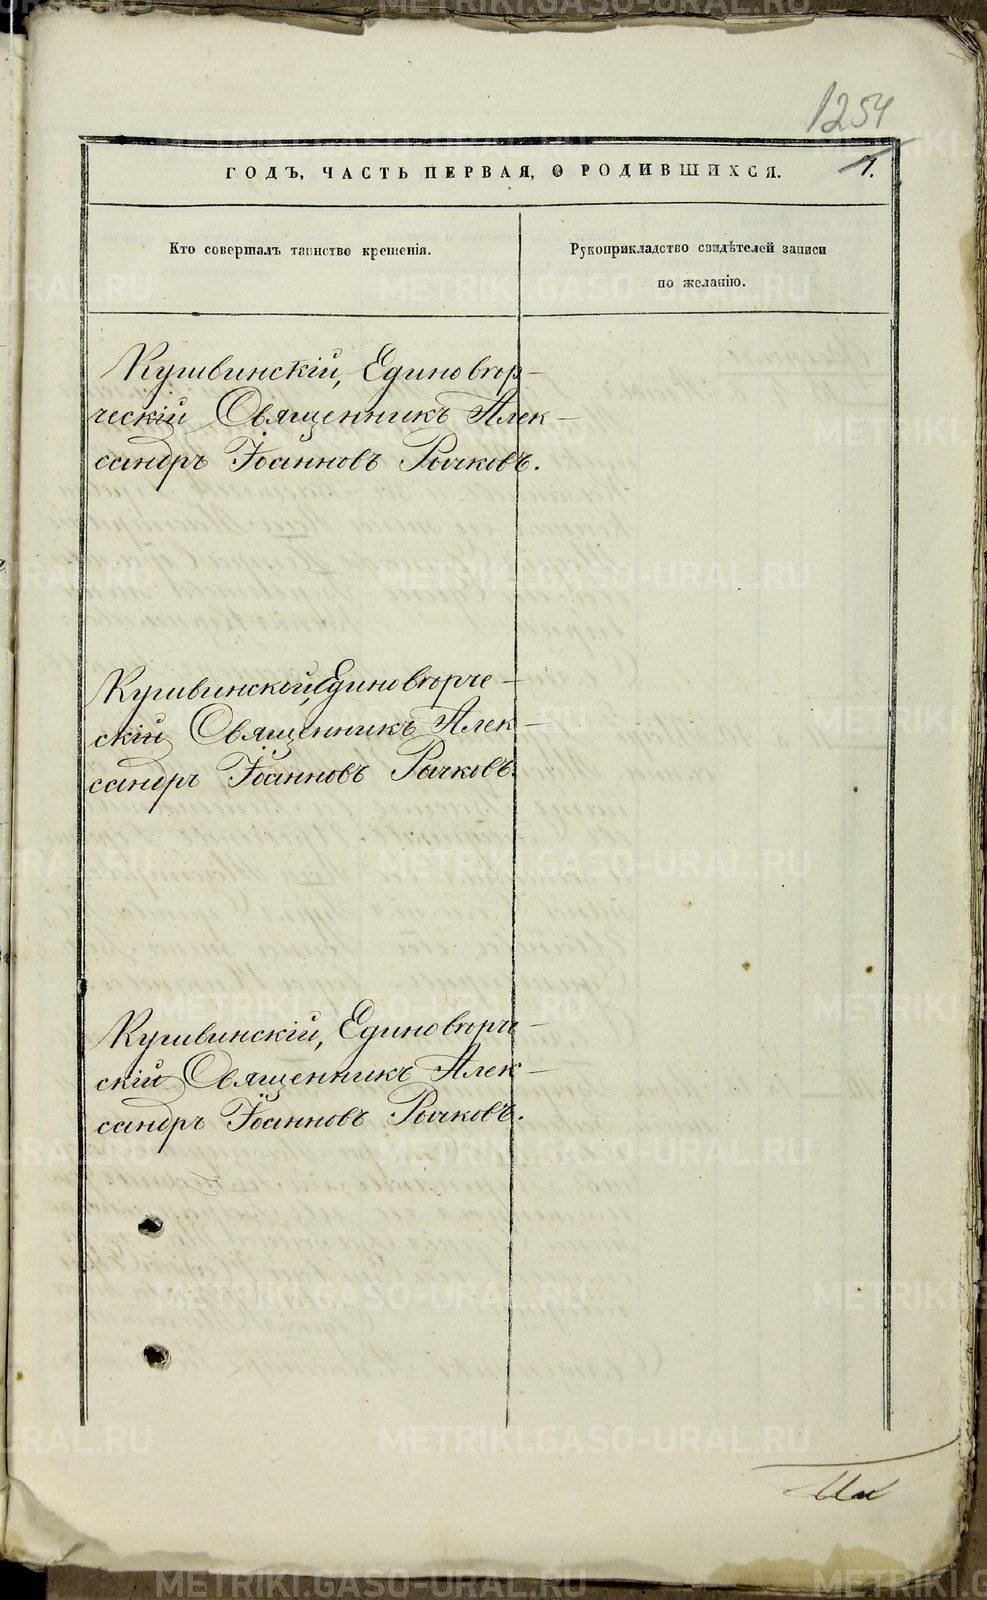 1254
ГОДЪ, ЧАСТЬ ПЕРВАЯ, О РОДИВШИХСЯ.
7.
Кто совершалъ таинство крещенія.
Рукоприкладство свидѣтелей записи
по желанію.
Кушвинскій, Единовѣр-
ческій Священникъ Алек-
сандръ Іоанновъ Рычковъ.
Кушвинской, Единовѣрче-
скій Священникъ Алек-
сандръ Іоанновъ Рычковъ.
Кушвинскій, Единовѣрче-
скій Священникъ Алек-
сандръ Іоанновъ Рычковъ.
METRIKI.GASO-URAL.RU